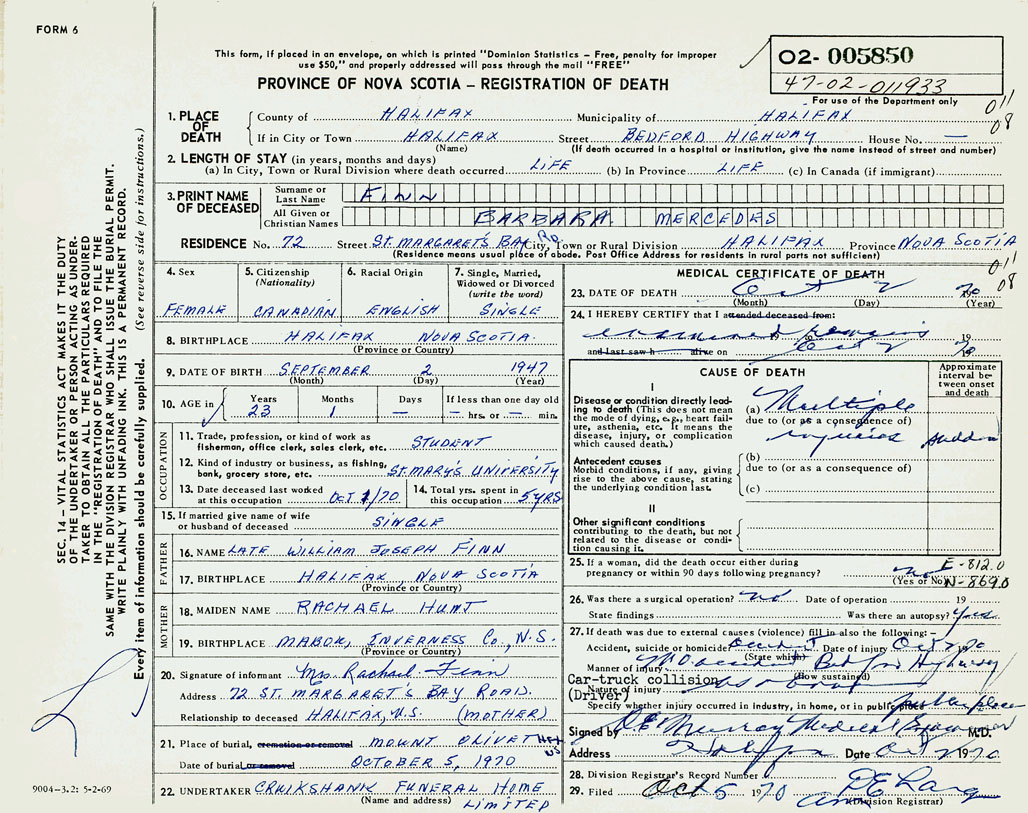 FORM 6
This form, if placed in an envelope, on which is printed "Dominion Statistics – Free, penalty for improper
use $50," and properly addressed will pass through the mail "FREE"
02- 005850
47-02-011933
For use of the Department only
PROVINCE OF NOVA SCOTIA – REGISTRATION OF DEATH
011
08
1. PLACE OF DEATH County of HALIFAX Municipality of HALIFAX
If in City or Town HALIFAX Street BEDFORD HIGHWAY House No. —
(Name) (If death occurred in a hospital or institution, give the name instead of street and number)
2. LENGTH OF STAY (in years, months and days)
(a) In City, Town or Rural Division where death occurred LIFE (b) In Province LIFE (c) In Canada (if immigrant)
3. PRINT NAME OF DECEASED Surname or Last Name FINN
All Given or Christian Names BARBARA MERCEDES
RESIDENCE No. 72 Street ST. MARGARET'S BAY RD City, Town or Rural Division HALIFAX Province NOVA SCOTIA
(Residence means usual place of abode. Post Office Address for residents in rural parts not sufficient)
SEC. 14 – VITAL STATISTICS ACT MAKES IT THE DUTY
OF THE UNDERTAKER OR PERSON ACTING AS UNDER-
TAKER TO OBTAIN ALL THE PARTICULARS REQUIRED
IN THE "REGISTRATION OF DEATH" AND TO FILE THE
SAME WITH THE DIVISION REGISTRAR WHO SHALL ISSUE THE BURIAL PERMIT.
WRITE PLAINLY WITH UNFADING INK. THIS IS A PERMANENT RECORD.
Every item of information should be carefully supplied. (See reverse side for instructions.)
4. Sex
FEMALE
5. Citizenship
(Nationality)
CANADIAN
6. Racial Origin
ENGLISH
7. Single, Married,
Widowed or Divorced
(write the word)
SINGLE
8. BIRTHPLACE HALIFAX NOVA SCOTIA
(Province or Country)
9. DATE OF BIRTH SEPTEMBER 2 1947
(Month) (Day) (Year)
10. AGE in Years Months Days If less than one day old
23 1 — — hrs. or — min.
OCCUPATION
11. Trade, profession, or kind of work as
fisherman, office clerk, sales clerk, etc. STUDENT
12. Kind of industry or business, as fishing,
bank, grocery store, etc. ST. MARY'S UNIVERSITY
13. Date deceased last worked
at this occupation OCT 1/70
14. Total yrs. spent in
this occupation 5 YRS
15. If married give name of wife
or husband of deceased SINGLE
FATHER
16. NAME LATE WILLIAM JOSEPH FINN
17. BIRTHPLACE HALIFAX, NOVA SCOTIA
(Province or Country)
MOTHER
18. MAIDEN NAME RACHAEL HUNT
19. BIRTHPLACE MABOU, INVERNESS CO., N.S.
(Province or Country)
20. Signature of informant Mrs. Rachael Finn
Address 72 ST. MARGARET'S BAY ROAD.
Relationship to deceased HALIFAX, N.S. (MOTHER)
21. Place of burial, cremation or removal MOUNT OLIVET HFX NS
Date of burial or removal OCTOBER 5, 1970
22. UNDERTAKER CRUIKSHANK FUNERAL HOME
(Name and address) LIMITED
9004-3.2: 5-2-69
MEDICAL CERTIFICATE OF DEATH
011
08
23. DATE OF DEATH Oct 2 70
(Month) (Day) (Year)
24. I HEREBY CERTIFY that I attended deceased from:
examined remains 19
and last saw h alive on Oct 2 19 70
CAUSE OF DEATH
Approximate
interval be-
tween onset
and death
I
Disease or condition directly lead-
ing to death (This does not mean
the mode of dying, e.g., heart fail-
ure, asthenia, etc. It means the
disease, injury, or complication
which caused death.)
(a) Multiple
due to (or as a consequence of)
injuries sudden
Antecedent causes
Morbid conditions, if any, giving
rise to the above cause, stating
the underlying condition last.
(b)
due to (or as a consequence of)
(c)
II
Other significant conditions
contributing to the death, but not
related to the disease or condi-
tion causing it.
25. If a woman, did the death occur either during
pregnancy or within 90 days following pregnancy? no
(Yes or No)
E-812.0
N-869.0
26. Was there a surgical operation? no Date of operation 19
State findings Was there an autopsy? Yes
27. If death was due to external causes (violence) fill in also the following: –
Accident, suicide or homicide Date of injury Oct 2 70
(State which)
Manner of injury accident Bedford Highway
(How sustained)
Car-truck collision
(Driver)
Nature of injury as above
Specify whether injury occurred in industry, in home, or in public place
Signed by D.E. Murray Medical Examiner M.D.
Address Halifax Date Oct 2 1970
28. Division Registrar's Record Number
29. Filed Oct 5 1970
(Division Registrar)